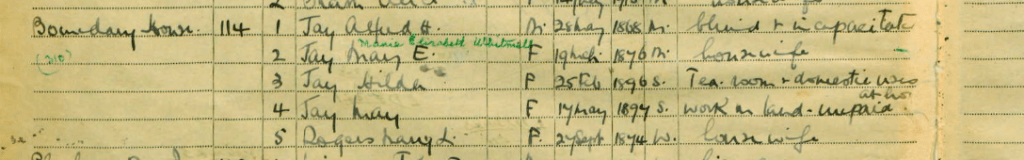 Boundary House. 114 1 Jay Alfred H. M. 28 May 1868 M. blind & incapacitate
Marie Elizabeth Whitmell
(310) 2 Jay Mary E. F 19 Mch 1876 M. housewife
3 Jay Hilda F 25 Feb 1896 S. Tea room & domestic
at ho
4 Jay May F 17 May 1897 S. work on land - unpaid
5 Rogers Mary L. F. 27 Sept 1874 W. housewife